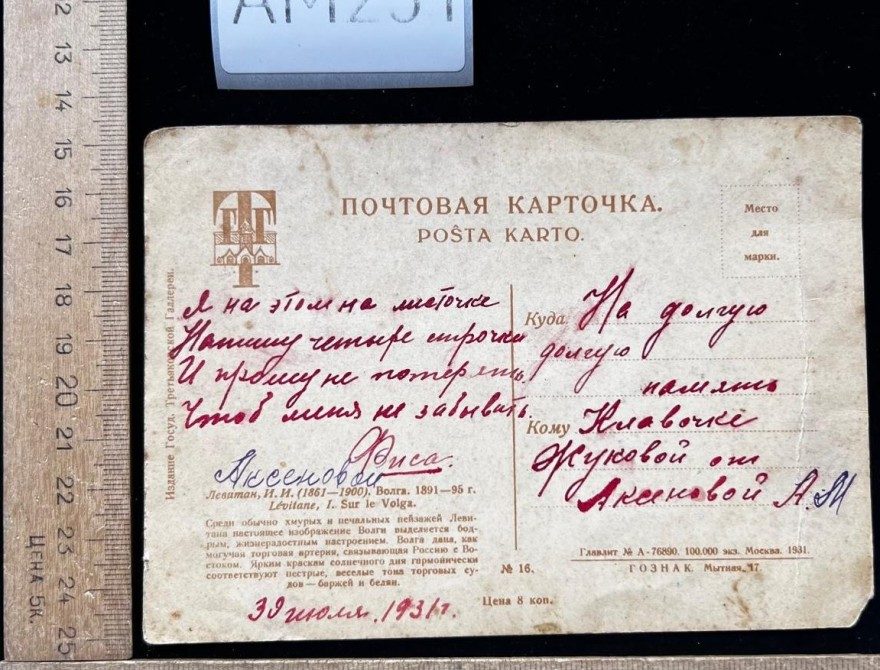 AM251
12
13
14
15
16
17
18
19
20
21
22
23
24
25
ЦЕНА 5к
ПОЧТОВАЯ КАРТОЧКА.
POŜTA KARTO.
Место
для
марки.
Издание Госуд. Третьяковской Галлереи.
Я на этом на листочке
Напишу четыре строчки
И прошу не потерять
Чтоб меня не забывать.
Фиса.
Аксеновой
Левитан, И. И. (1861—1900). Волга. 1891—95 г.
Lévitane, I. Sur le Volga.
Среди обычно хмурых и печальных пейзажей Леви-
тана настоящее изображение Волги выделяется бод-
рым, жизнерадостным настроением. Волга дана, как
могучая торговая артерия, связывающая Россию с Во-
стоком. Ярким краскам солнечного дня гармонически
соответствуют пестрые, веселые тона торговых су-
дов — баржей и белян.
30 июля. 1931 г.
Куда На долгую
долгую
память
Кому Клавочке
Жуковой от
Аксеновой А.М
Главлит № А-76890. 100.000 экз. Москва. 1931.
ГОЗНАК. Мытная, 17.
№ 16.
Цена 8 коп.